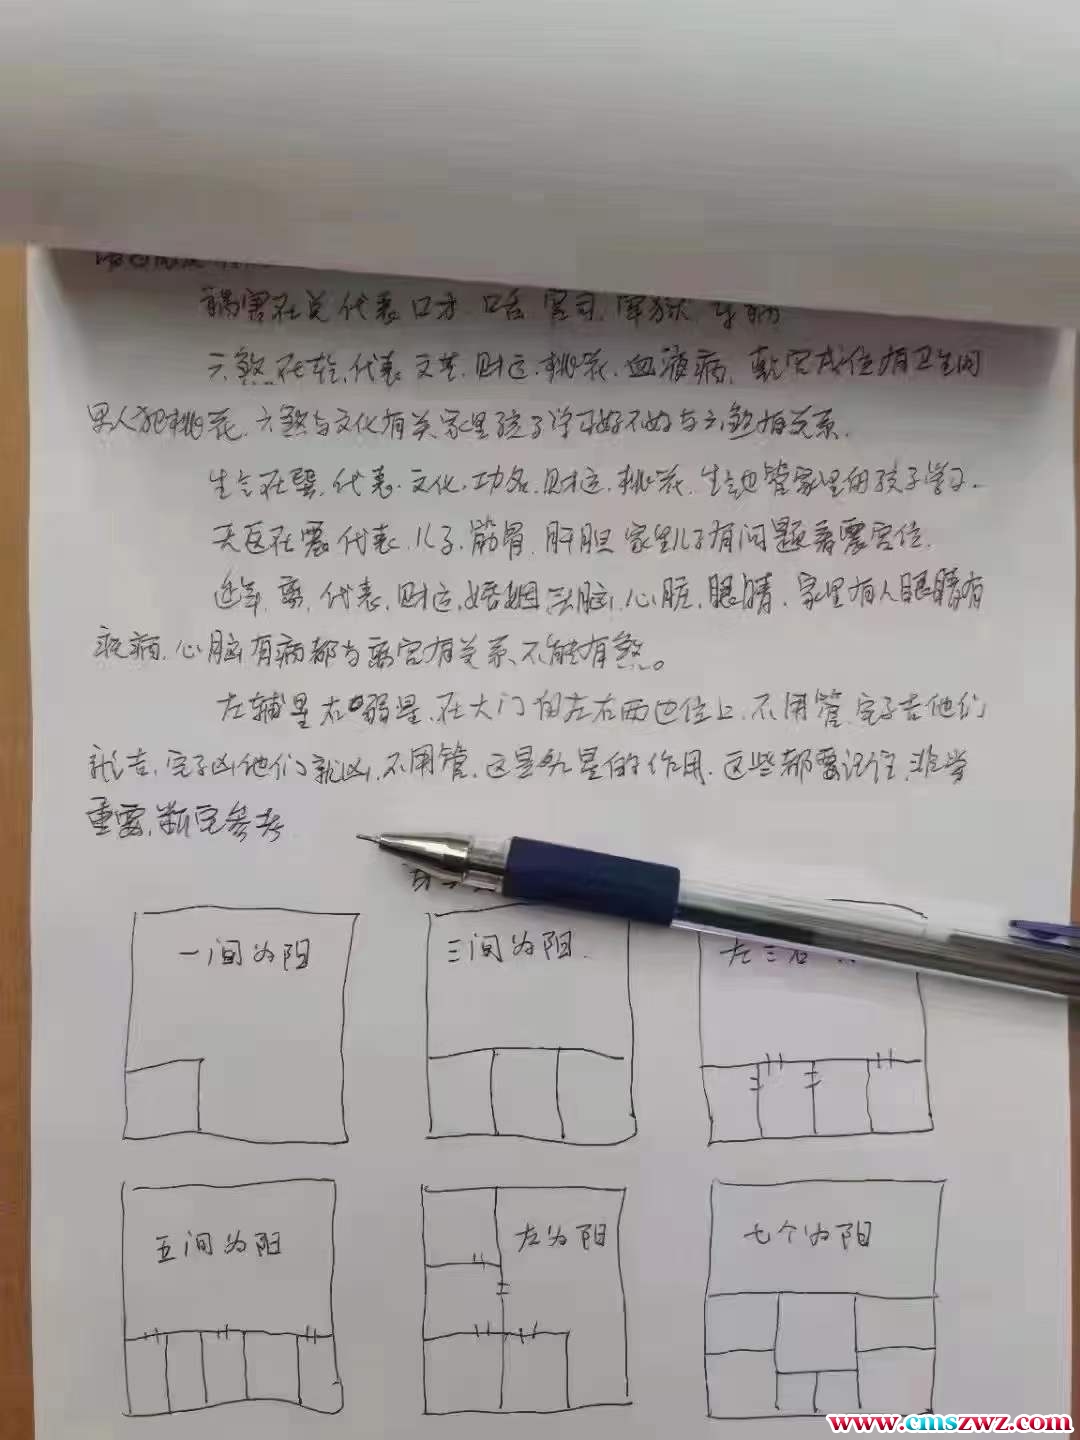 祸害在兑代表口才.口舌.官司.牢狱.牙病
六煞.在乾.代表文艺.财运.桃花.血液病.乾宫戌位有卫生间
男人犯桃花.六煞与文化有关家里孩子学习好不好与六煞有关系.
生气在巽.代表.文化.功名.财运.桃花.生气也管家里的孩子学习.
天医在震代表.儿子.筋骨.肝胆家里儿子有问题看震宫位.
延年.离.代表.财运.婚姻头脑.心脏.眼睛.家里有人眼睛有
疾病.心脑有病都与离宫有关系.不能有煞。
左辅星右弼星.在大门的左右两边位上.不用管.宅子吉他们
就吉.宅子凶他们就凶.不用管.这是九星的作用.这些都要记住.非常
重要.断宅参考
一间为阳
三间为阳.
左三右
五间为阳
左为阳
七个为阳
www.cmszwz.com